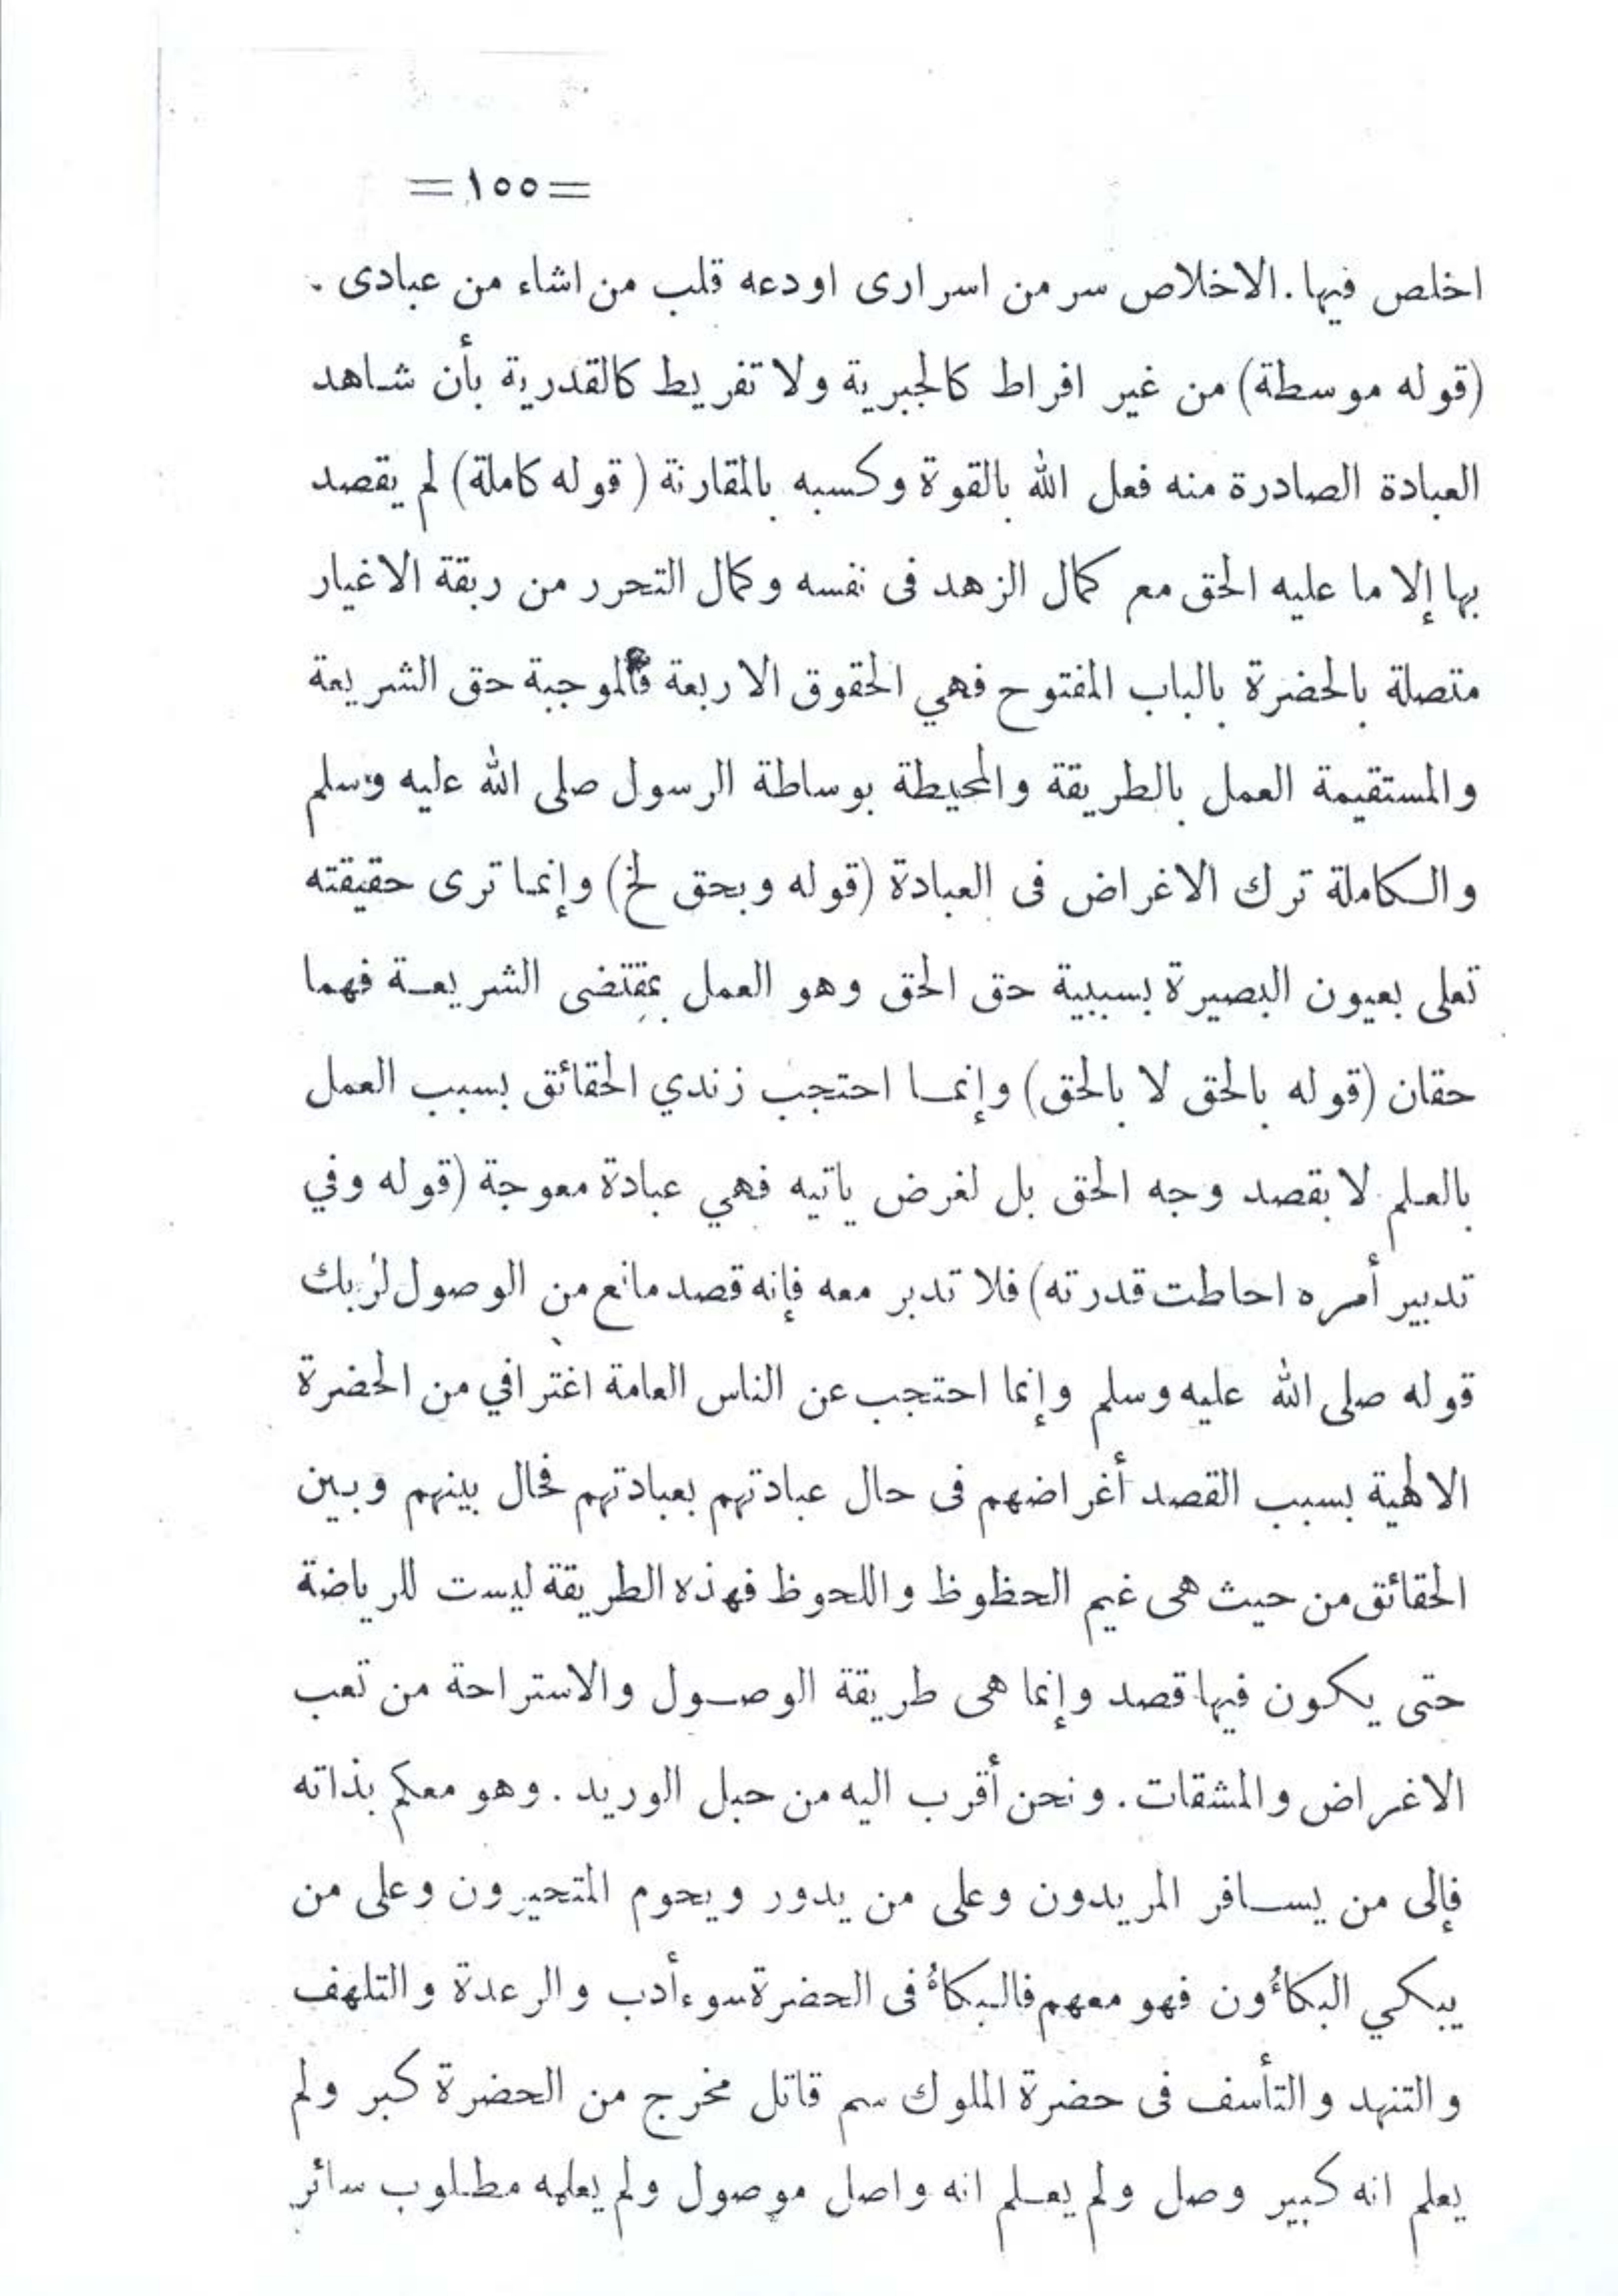 =١٥٥=
اخلص فيها. الاخلاص سر من اسرارى اودعه قلب من اشاء من عبادى.
(قوله موسطة) من غير افراط كالجبرية ولا تفريط كالقدرية بأن شاهد
العبادة الصادرة منه فعل الله بالقوة وكسبه بالمقارنة (قوله كاملة) لم يقصد
بها إلا ما عليه الحق مع كمال الزهد فى نفسه وكمال التحرر من ربقة الاغيار
متصلة بالحضرة بالباب المفتوح فهي الحقوق الاربعة فالموجبة حق الشريعة
والمستقيمة العمل بالطريقة والمحيطة بوساطة الرسول صلى الله عليه وسلم
والكاملة ترك الاغراض فى العبادة (قوله وبحق لخ) وإنما ترى حقيقته
تعلى بعيون البصيرة بسببية حق الحق وهو العمل بمقتضى الشريعة فهما
حقان (قوله بالحق لا بالحق) وإنما احتجب زندي الحقائق بسبب العمل
بالعلم لا بقصد وجه الحق بل لغرض ياتيه فهي عبادة معوجة (قوله وفي
تدبير أمره احاطت قدرته) فلا تدبر معه فإنه قصد مانع من الوصول لربك
قوله صلى الله عليه وسلم وإنما احتجب عن الناس العامة اغترافي من الحضرة
الالهية بسبب القصد أغراضهم فى حال عبادتهم بعبادتهم فحال بينهم وبين
الحقائق من حيث هى غيم الحظوظ واللحوظ فهذه الطريقة ليست للرياضة
حتى يكون فيها قصد وإنما هى طريقة الوصول والاستراحة من تعب
الاغراض والمشقات. ونحن أقرب اليه من حبل الوريد. وهو معكم بذاته
فإلى من يسافر المريدون وعلى من يدور ويحوم المتحيرون وعلى من
يبكي البكاؤون فهو معهم فالبكاؤ فى الحضرة سوء أدب والرعدة والتلهف
والتنهد والتأسف فى حضرة الملوك سم قاتل مخرج من الحضرة كبر ولم
يعلم انه كبير وصل ولم يعلم انه واصل موصول ولم يعلمه مطلوب سائر